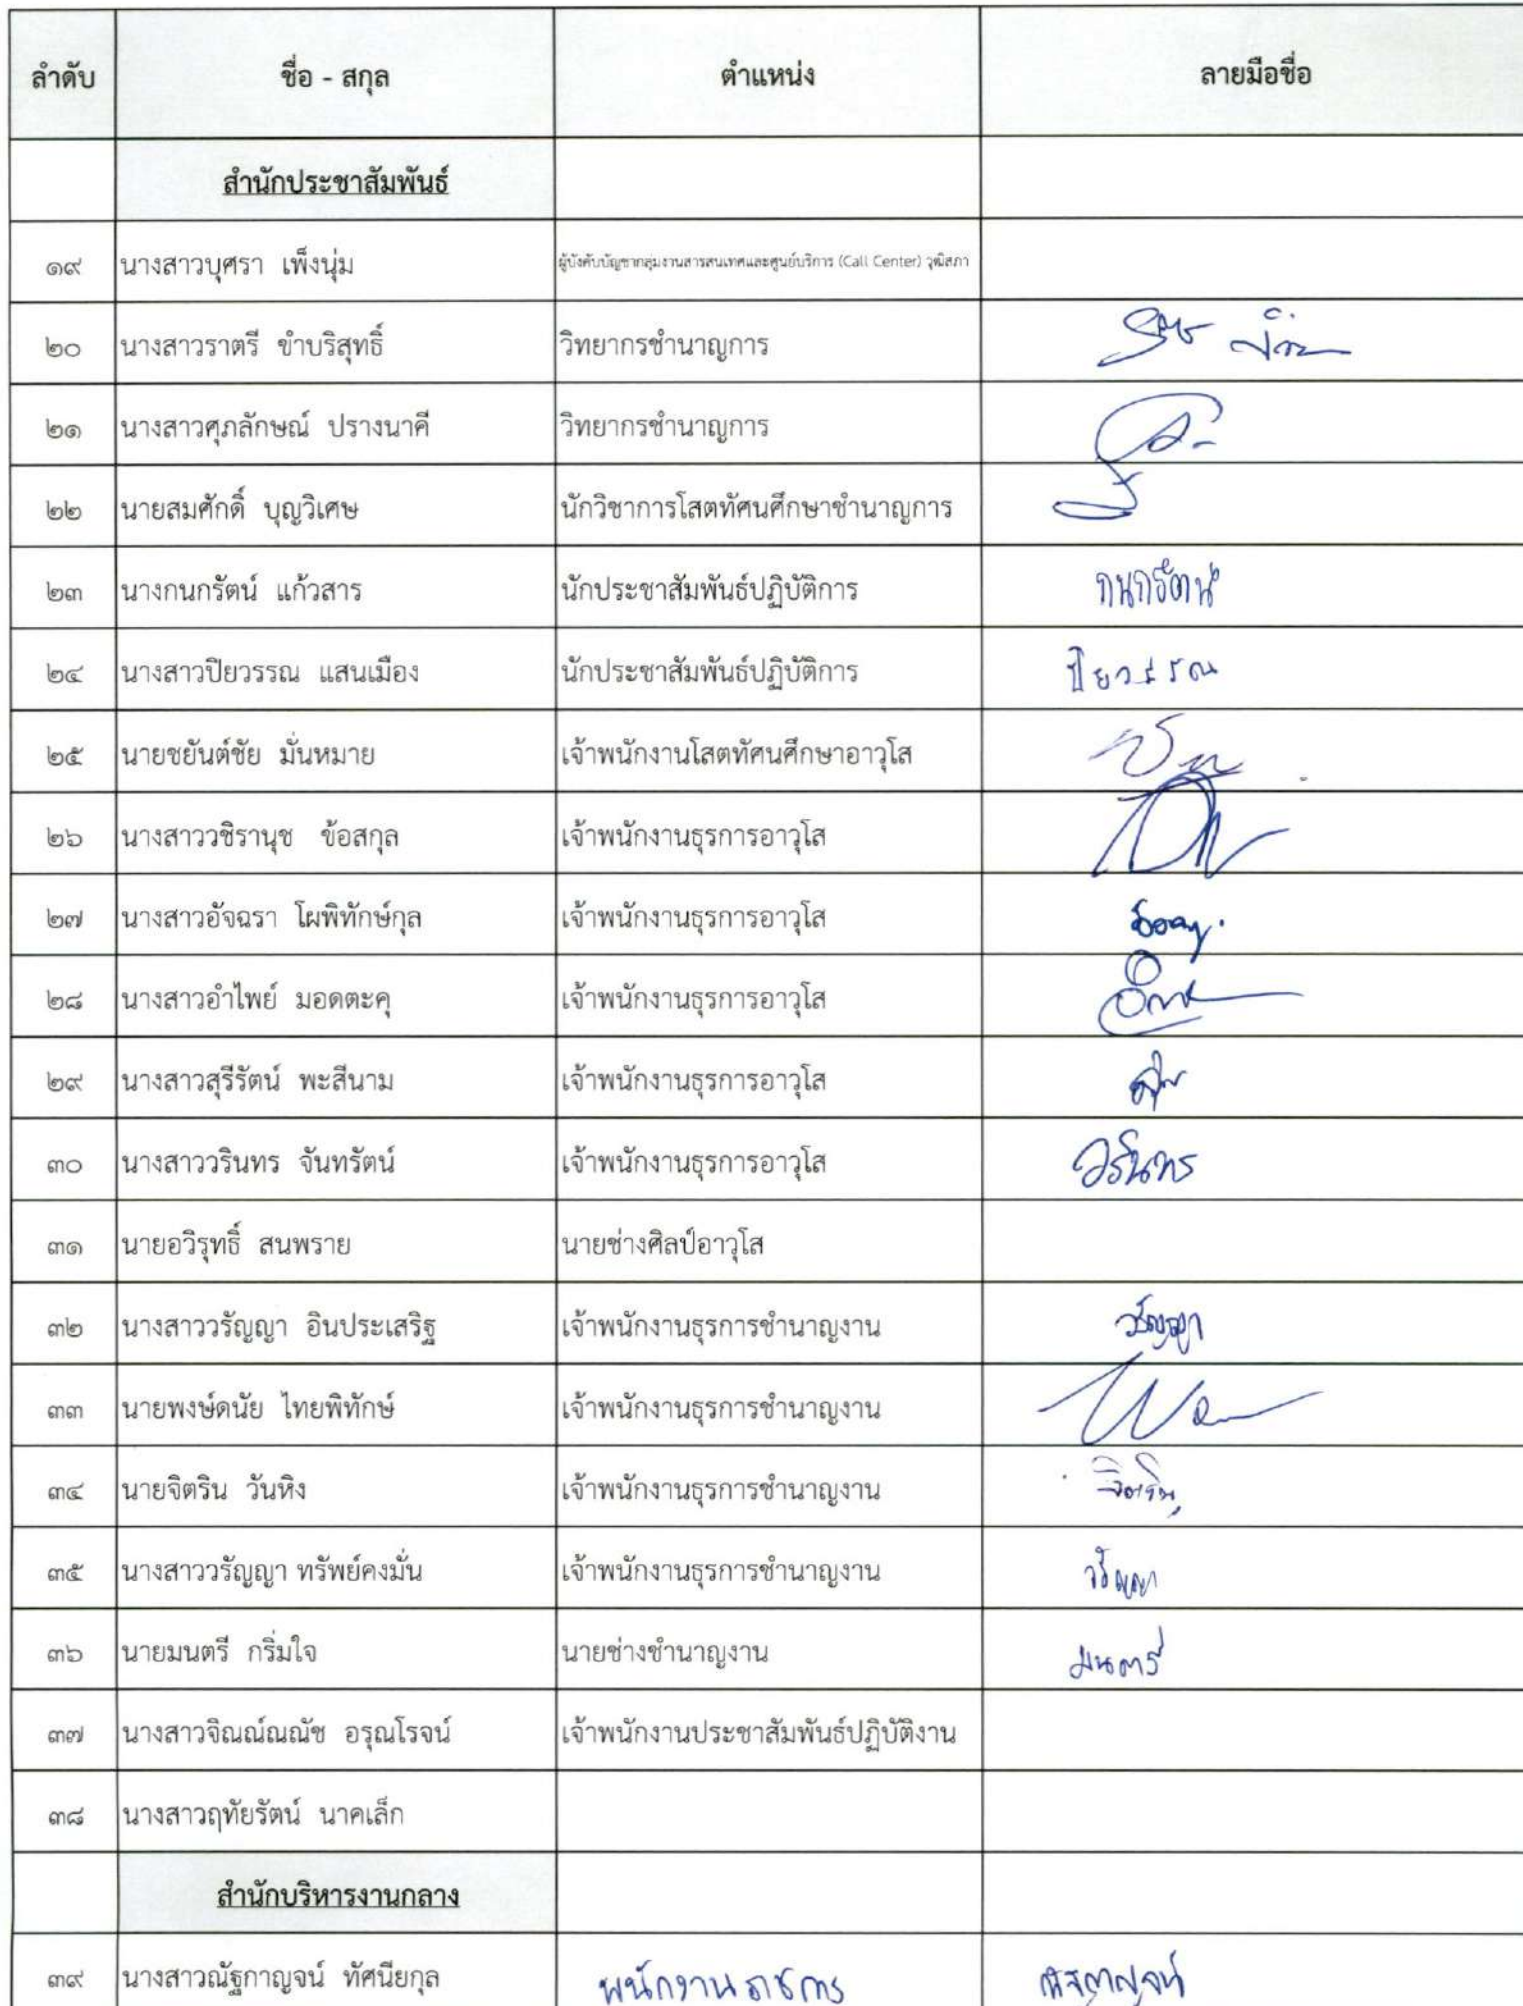 ลำดับ ชื่อ - สกุล ตำแหน่ง ลายมือชื่อ
สำนักประชาสัมพันธ์
๑๙ นางสาวบุศรา เพ็งนุ่ม ผู้บังคับบัญชากลุ่มงานสารสนเทศและศูนย์บริการ (Call Center) วุฒิสภา
๒๐ นางสาวราตรี ขำบริสุทธิ์ วิทยากรชำนาญการ
๒๑ นางสาวศุภลักษณ์ ปรางนาคี วิทยากรชำนาญการ
๒๒ นายสมศักดิ์ บุญวิเศษ นักวิชาการโสตทัศนศึกษาชำนาญการ
๒๓ นางกนกรัตน์ แก้วสาร นักประชาสัมพันธ์ปฏิบัติการ กนกรัตน์
๒๔ นางสาวปิยวรรณ แสนเมือง นักประชาสัมพันธ์ปฏิบัติการ ปิยวรรณ
๒๕ นายชยันต์ชัย มั่นหมาย เจ้าพนักงานโสตทัศนศึกษาอาวุโส
๒๖ นางสาววชิรานุช ข้อสกุล เจ้าพนักงานธุรการอาวุโส
๒๗ นางสาวอัจฉรา โผพิทักษ์กุล เจ้าพนักงานธุรการอาวุโส
๒๘ นางสาวอำไพย์ มอดตะคุ เจ้าพนักงานธุรการอาวุโส
๒๙ นางสาวสุรีรัตน์ พะสีนาม เจ้าพนักงานธุรการอาวุโส
๓๐ นางสาววรินทร จันทรัตน์ เจ้าพนักงานธุรการอาวุโส วรินทร
๓๑ นายอวิรุทธิ์ สนพราย นายช่างศิลป์อาวุโส
๓๒ นางสาววรัญญา อินประเสริฐ เจ้าพนักงานธุรการชำนาญงาน วรัญญา
๓๓ นายพงษ์ดนัย ไทยพิทักษ์ เจ้าพนักงานธุรการชำนาญงาน
๓๔ นายจิตริน วันหิง เจ้าพนักงานธุรการชำนาญงาน จิตริน
๓๕ นางสาววรัญญา ทรัพย์คงมั่น เจ้าพนักงานธุรการชำนาญงาน วรัญญา
๓๖ นายมนตรี กริ่มใจ นายช่างชำนาญงาน มนตรี
๓๗ นางสาวจิณณ์ณณัช อรุณโรจน์ เจ้าพนักงานประชาสัมพันธ์ปฏิบัติงาน
๓๘ นางสาวฤทัยรัตน์ นาคเล็ก
สำนักบริหารงานกลาง
๓๙ นางสาวณัฐกาญจน์ ทัศนียกุล พนักงานราชการ ณัฐกาญจน์